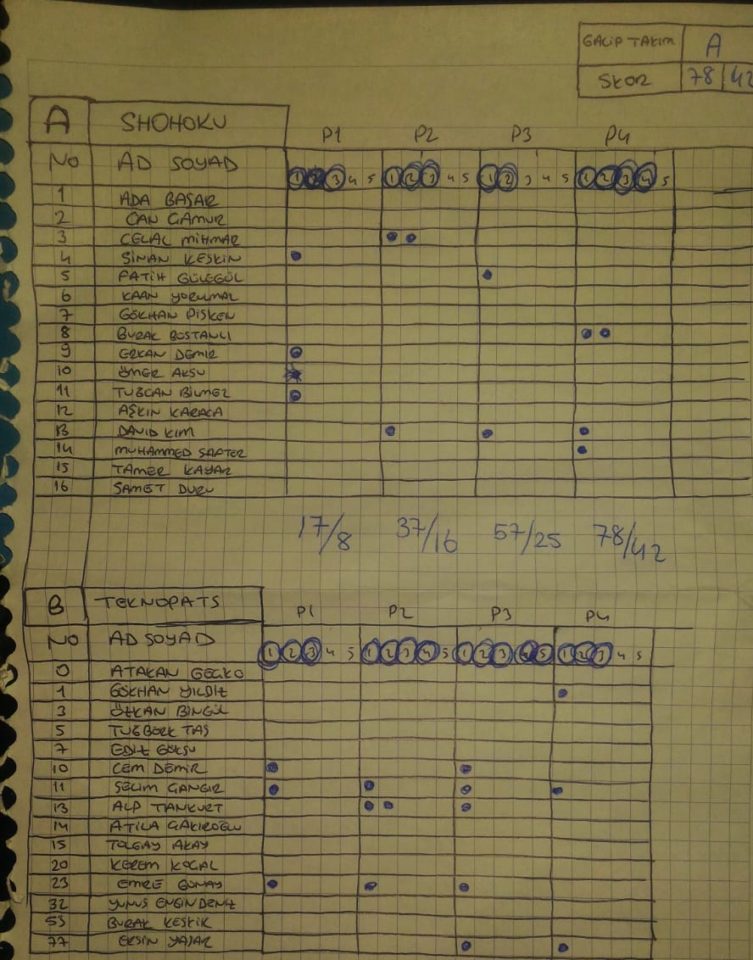 GALİP TAKIM A
SKOR 78 42
A SHOHOKU P1 P2 P3 P4
NO AD SOYAD 1 2 3 4 5 1 2 3 4 5 1 2 3 4 5 1 2 3 4 5
1 ADA BAŞAR
2 CAN CAMUR
3 CELAL MIHMAR
4 SİNAN KESKİN
5 FATİH GÜLEGÜL
6 KAAN
7 GÖKHAN DİŞKEN
8 BURAK BOSTANLI
9 ERKAN DEMİR
10 ÖMER AKSU
11 TUĞCAN BİLMEZ
12 AŞKIN KARACA
13 DAVID KIM
14 MUHAMMED
15 TAMER KAYAR
16 SAMET DURU
17/8 37/16 57/25 78/42
B TEKNOPATS P1 P2 P3 P4
NO AD SOYAD 1 2 3 4 5 1 2 3 4 5 1 2 3 4 5 1 2 3 4 5
0 ATAKAN
1 GÖKHAN YILDIZ
3 ÖZKAN BİNGÜL
5 TUĞBERK TAŞ
7 EDİZ GÖKSU
10 CEM DEMİR
11 SELİM
13 ALP TANKURT
14 ATİLA ÇAKIROĞLU
15 TOLGAY AKAY
20 KEREM KOCAL
23 EMRE GÜNAY
32 YUNUS ENGİN DENİZ
53 BURAK
77 EKSİN YAŞAR